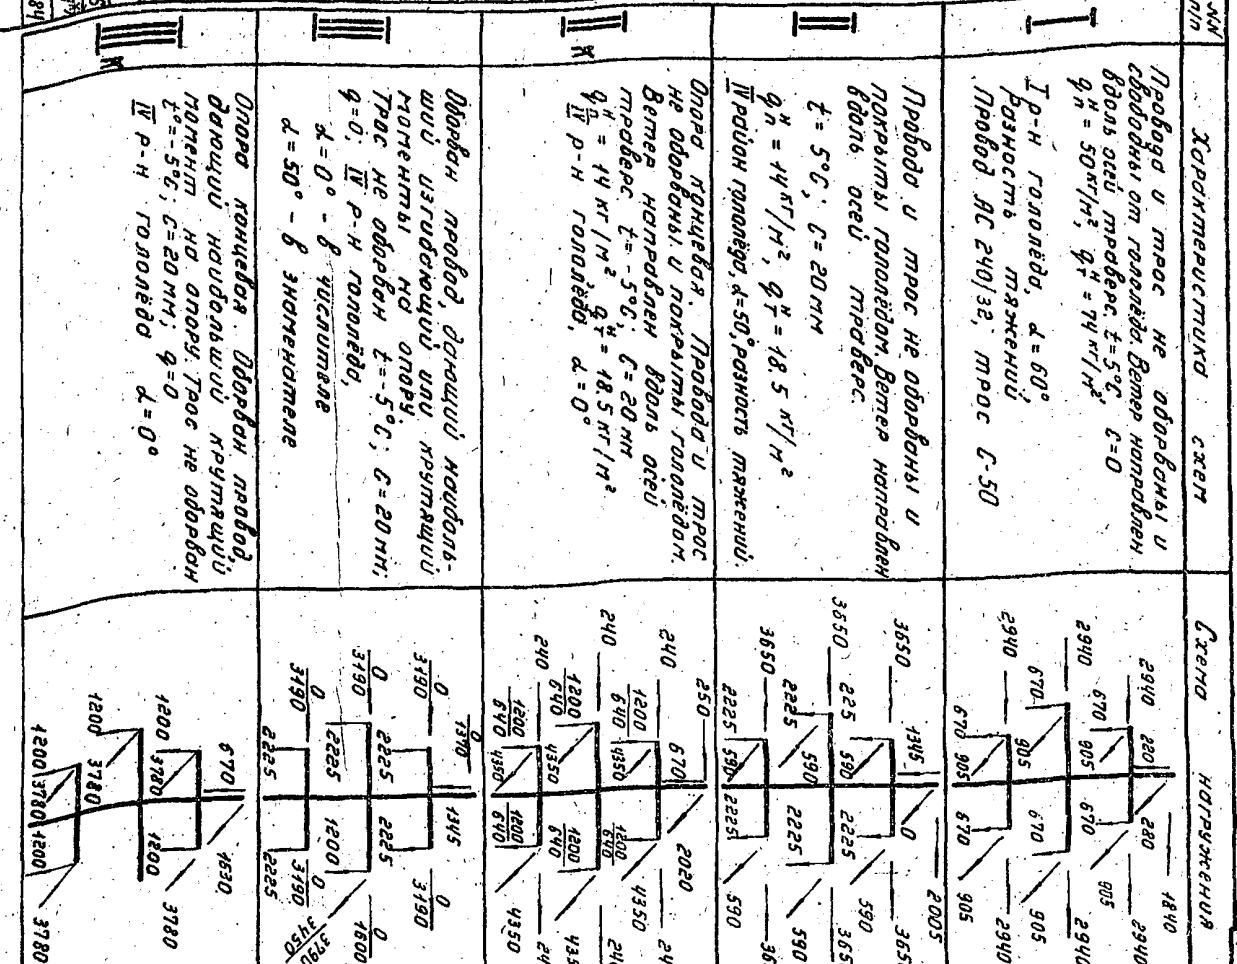 NN
п/п
Характеристика схем
Схема нагружения
I
Провода и трос не оборваны и
свободны от гололёда. Ветер направлен
вдоль осей траверс. t=5°C, C=0
qнп = 50 кг/м², qнт = 74 кг/м²
I р-н гололёда, α=60°
Разность тяжений
Провод АС 240/32, трос С-50
2940 220 280 1840
670 905 670 905 2940
2940 670 905 670 905 2940
2940 670 905 670 905 2940
II
Провода и трос не оборваны и
покрыты гололёдом. Ветер направлен
вдоль осей траверс.
t = 5°C; C = 20 мм
qнп = 14 кг/м², qнт = 18.5 кг/м²
IV район гололёда, α=50°, разность тяжений.
1345 0 2005
3650 225 590 2225 590
3650 2225 590 2225 590
3650 2225 590 2225 590
III
К
Опора концевая. Провода и трос
не оборваны и покрыты гололёдом.
Ветер направлен вдоль осей
траверс t=-5°C; C=20 мм
qнп = 14 кг/м² qнт = 18.5 кг/м²
IV р-н гололёда, α=0°
250 670 2020
240 1200/640 4350 1200/640 4350
240 1200/640 4350 1200/640
240 1200/640 4350 1200/640 4350
Оборван провод, дающий наиболь-
ший изгибающий или крутящий
моменты на опору.
Трос не оборван t=-5°C; C=20мм;
q=0; IV р-н гололёда,
α=0° - в числителе
α=50° - в знаменателе
0/1370 1345
0/3190 2225 2225 0/3190
0/3190 2225 1200 0/1600
0/3190 2225 2225 0/3190 3790/3450
К
Опора концевая. Оборван провод,
дающий наибольший крутящий
момент на опору. Трос не оборван
t°=-5°C; C=20мм; q=0
IV р-н гололёда α=0°
670 1630
1200 3780 1200 3780
1200 3780
1200 3780 1200 3780